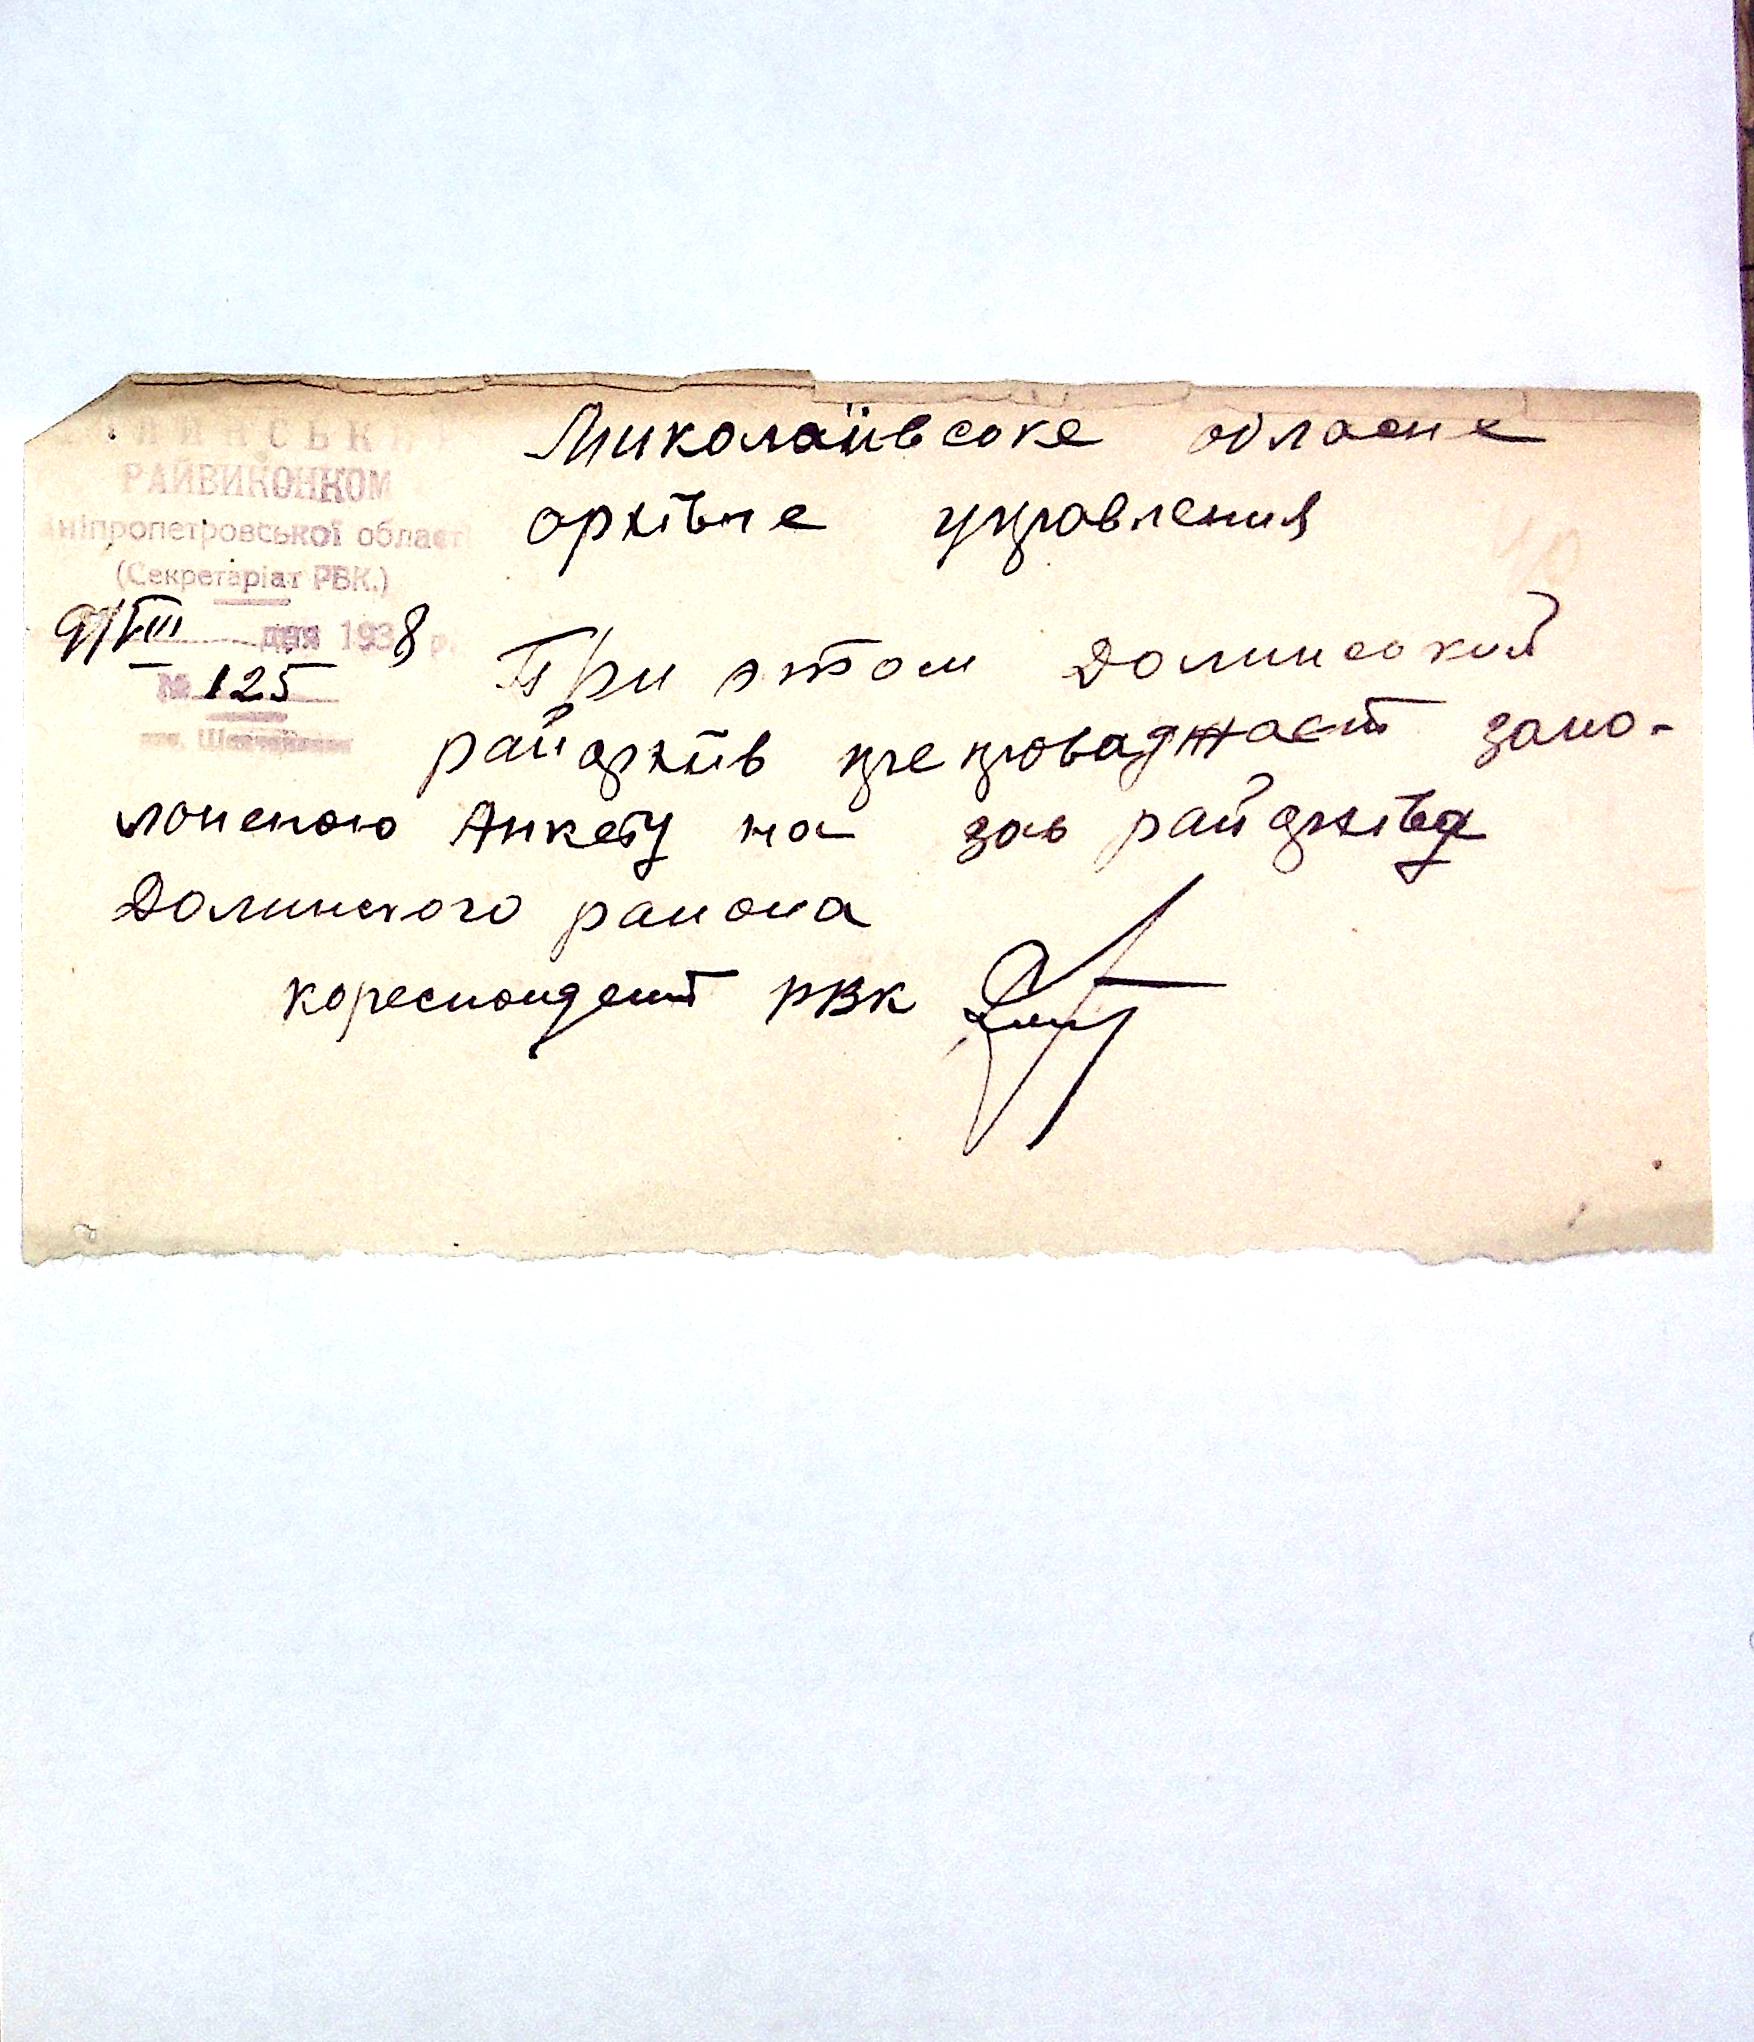 РАЙВИКОНКОМ
Дніпропетровської області
(Секретаріат РВК.)
9/VIII дня 1938 р.
№ 125
Миколаївське обласне
архівне управления
При этом Долинский
райархів препроваджает запо-
лоненою Анкету на зав райархіва
Долинского района
кореспондент РВК